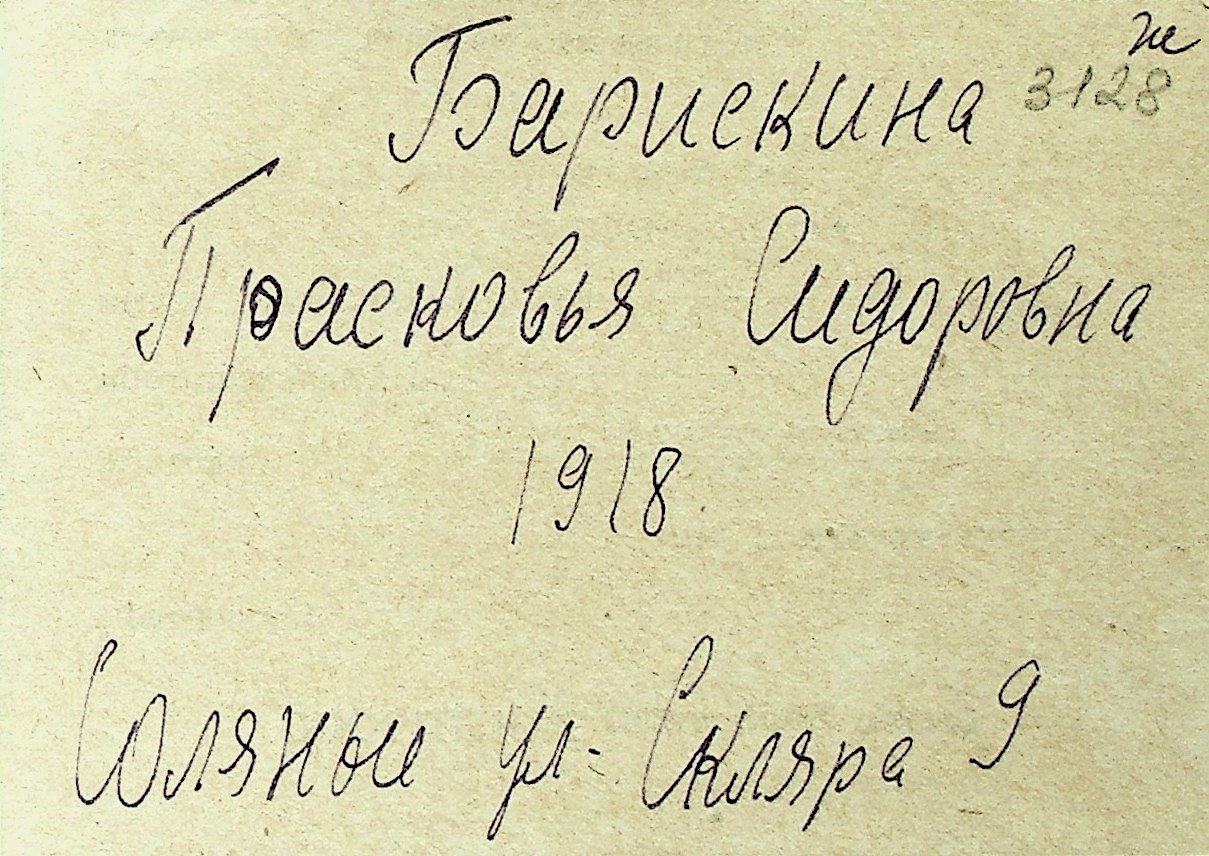 ж
Барискина 3128
Прасковья Сидоровна
1918
Соляные ул- Скляра 9